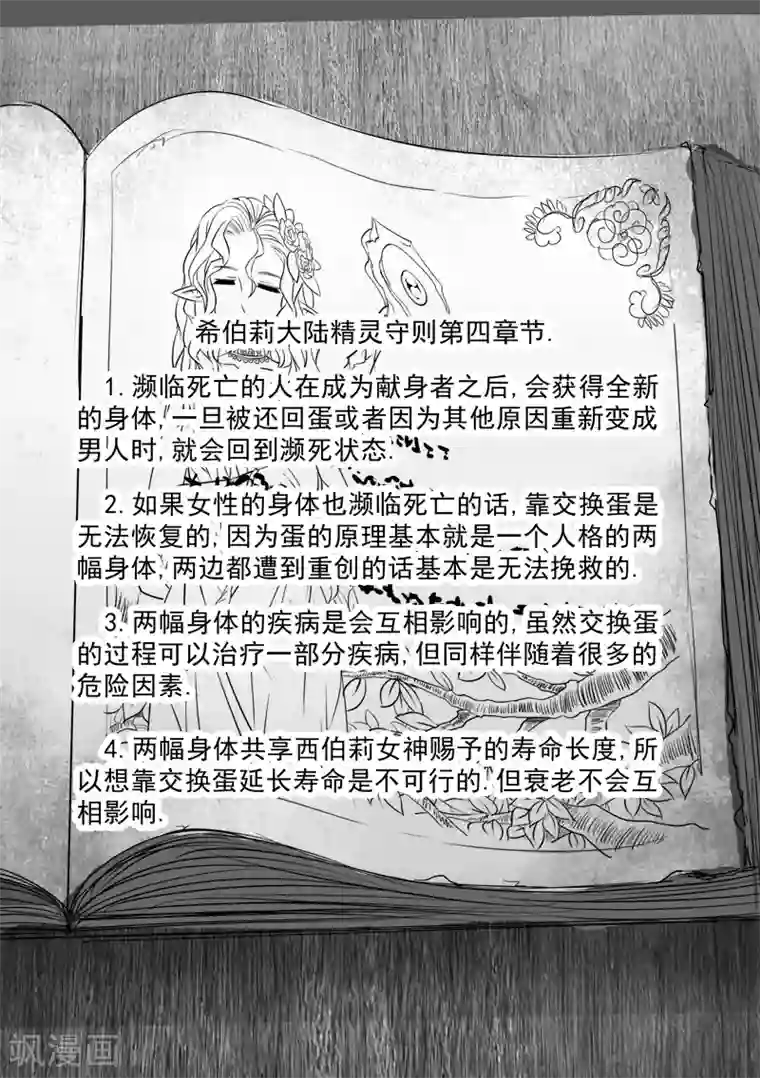 希伯莉大陆精灵守则第四章节.
1. 濒临死亡的人在成为献身者之后, 会获得全新
的身体, 一旦被还回蛋或者因为其他原因重新变成
男人时, 就会回到濒死状态.
2. 如果女性的身体也濒临死亡的话, 靠交换蛋是
无法恢复的, 因为蛋的原理基本就是一个人格的两
幅身体, 两边都遭到重创的话基本是无法挽救的.
3. 两幅身体的疾病是会互相影响的, 虽然交换蛋
的过程可以治疗一部分疾病, 但同样伴随着很多的
危险因素.
4. 两幅身体共享西伯莉女神赐予的寿命长度, 所
以想靠交换蛋延长寿命是不可行的. 但衰老不会互
相影响.
飒漫画